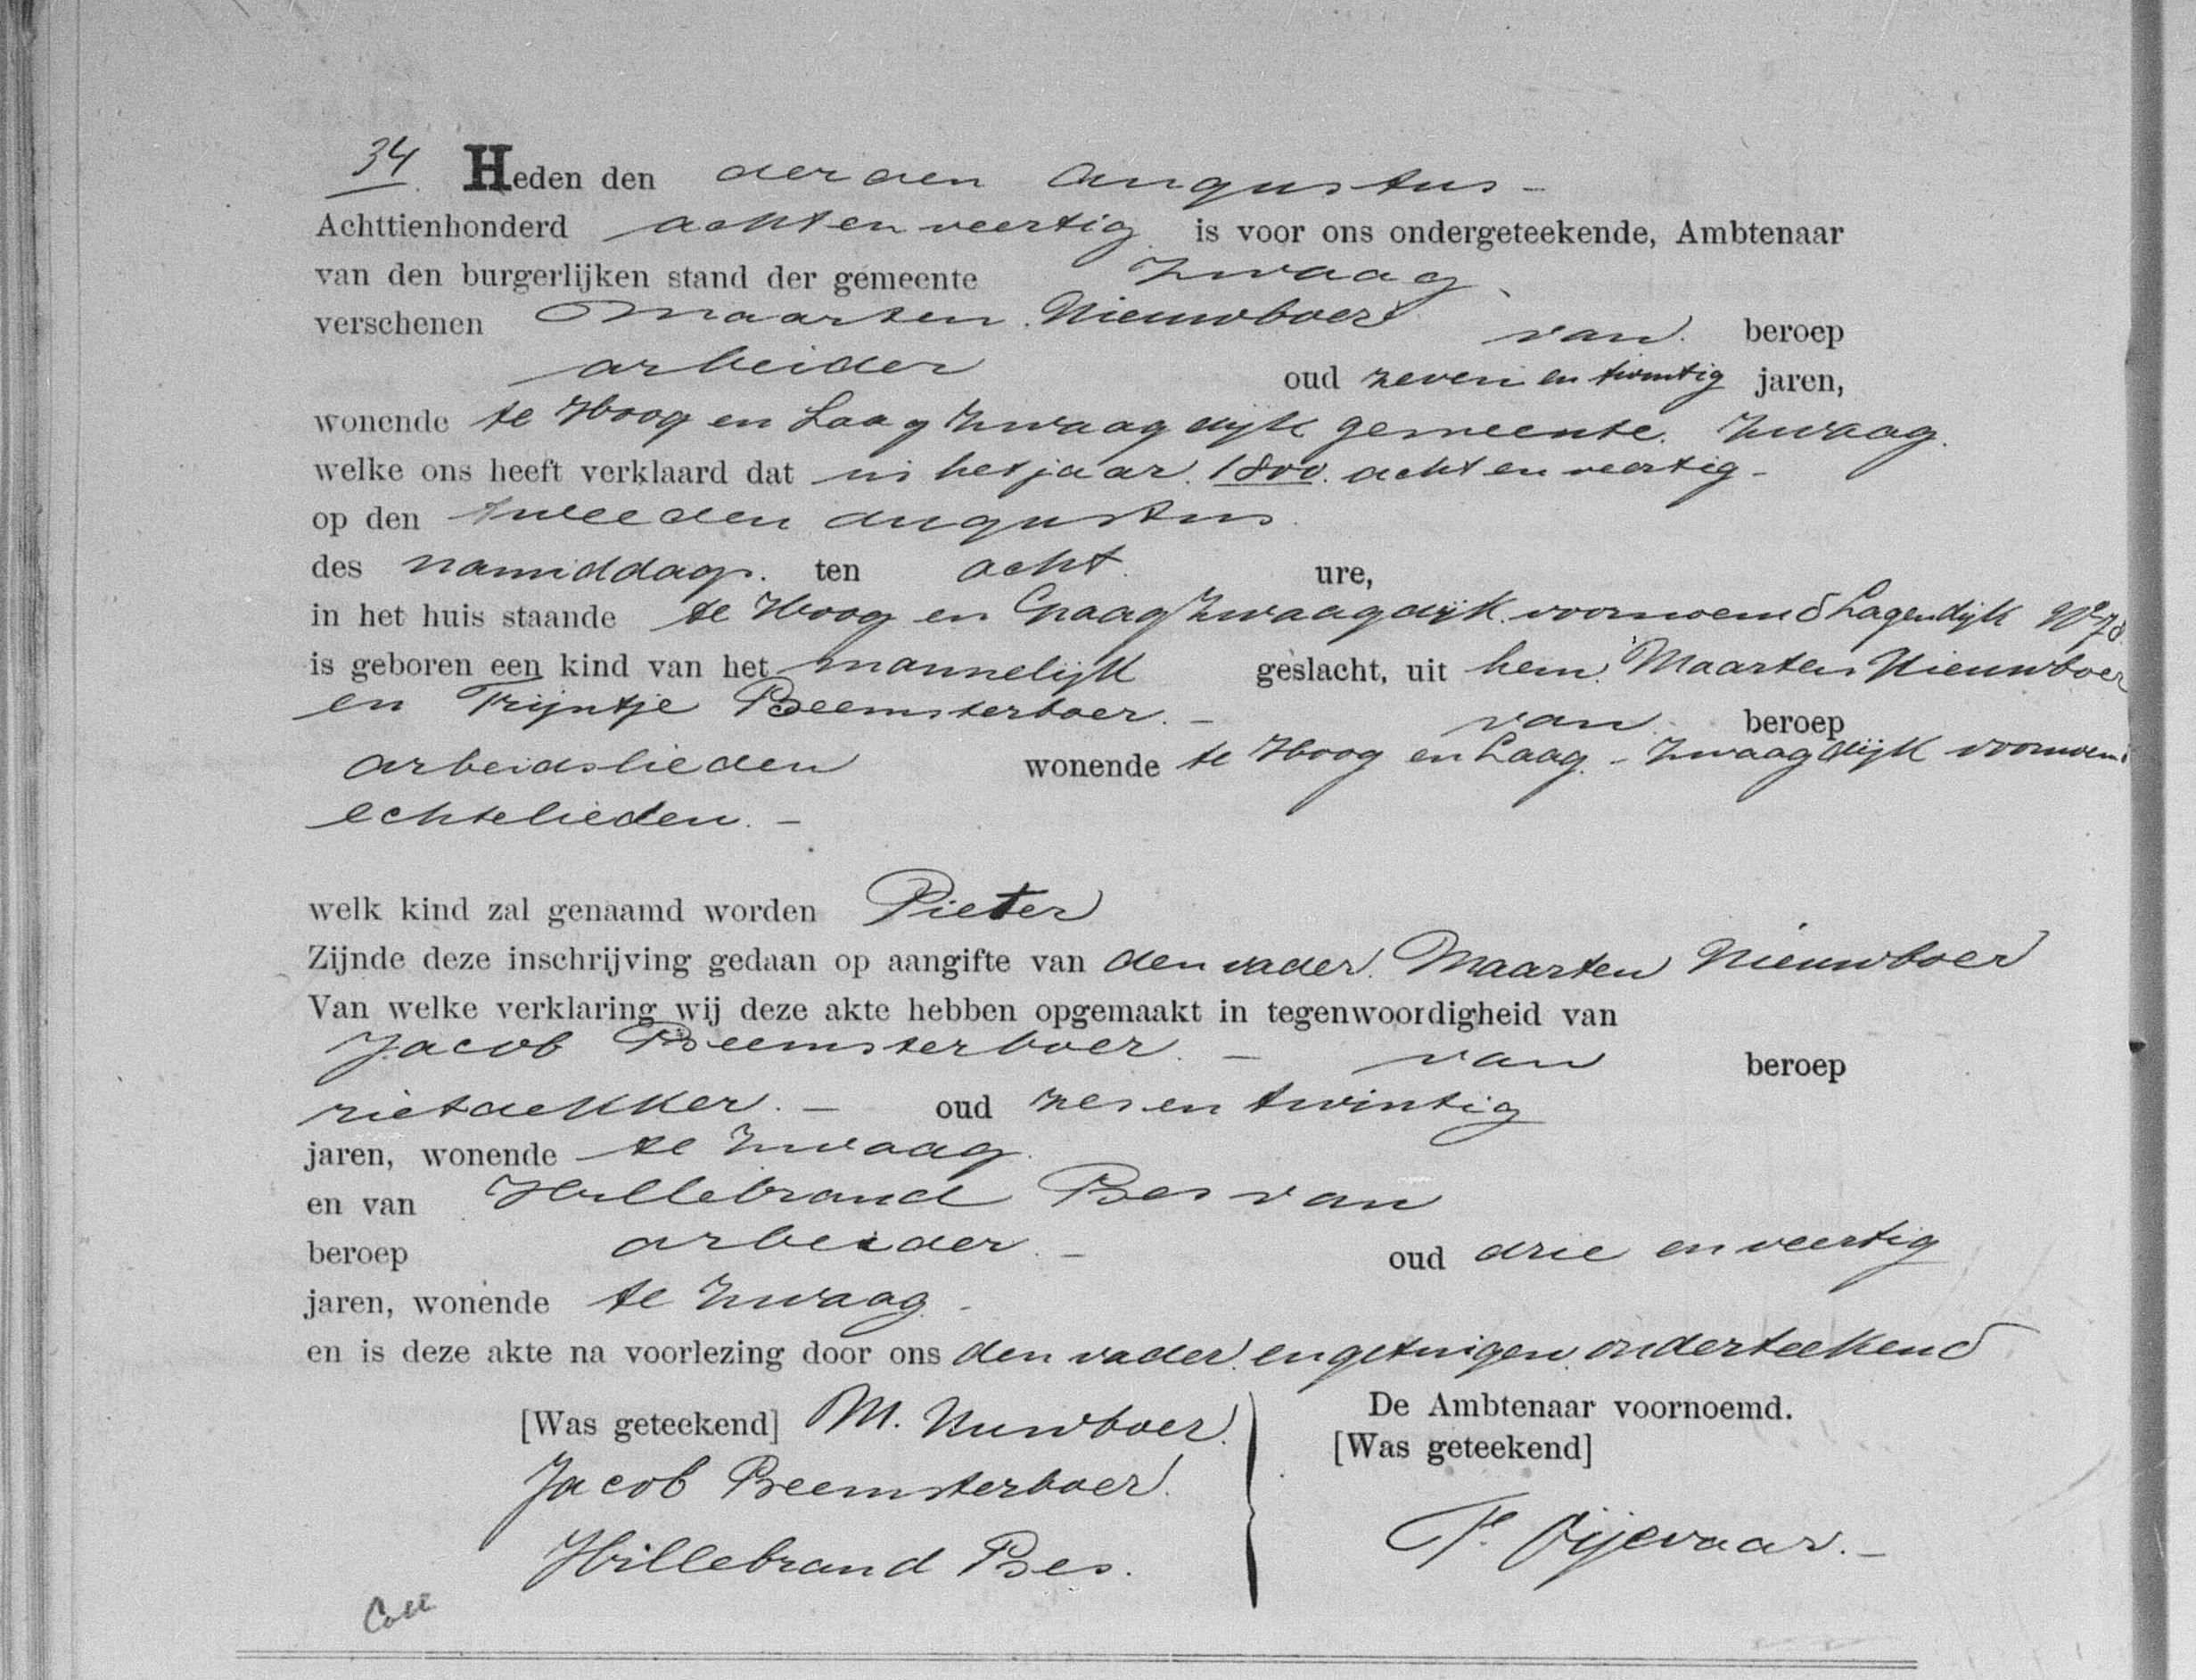 34. Heden den derden Augustus -
Achttienhonderd achtenveertig is voor ons ondergeteekende, Ambtenaar
van den burgerlijken stand der gemeente Zwaag
verschenen Maarten Nieuwboer van beroep
arbeider oud zeven en twintig jaren,
wonende te Hoog en Laag Zwaagdijk gemeente Zwaag.
welke ons heeft verklaard dat in het jaar 1800 acht en veertig -
op den tweeden Augustus
des namiddags. ten acht ure,
in het huis staande te Hoog en Laag Zwaagdijk voornoemd Lagendijk No 78
is geboren een kind van het mannelijk geslacht, uit hem Maarten Nieuwboer
en Trijntje Beemsterboer. - van beroep
arbeidslieden wonende te Hoog en Laag - Zwaagdijk voornoemd
echtelieden. -
welk kind zal genaamd worden Pieter
Zijnde deze inschrijving gedaan op aangifte van den vader. Maarten Nieuwboer
Van welke verklaring wij deze akte hebben opgemaakt in tegenwoordigheid van
Jacob Beemsterboer. - van beroep
rietdekker. - oud zes en twintig
jaren, wonende te Zwaag.
en van Hillebrand Bes van
beroep arbeider. - oud drie en veertig
jaren, wonende te Zwaag. -
en is deze akte na voorlezing door ons den vader en getuigen onderteekend
[Was geteekend] M. Nuwboer.
Jacob Beemsterboer.
Hillebrand Bes.
De Ambtenaar voornoemd.
[Was geteekend]
Coll